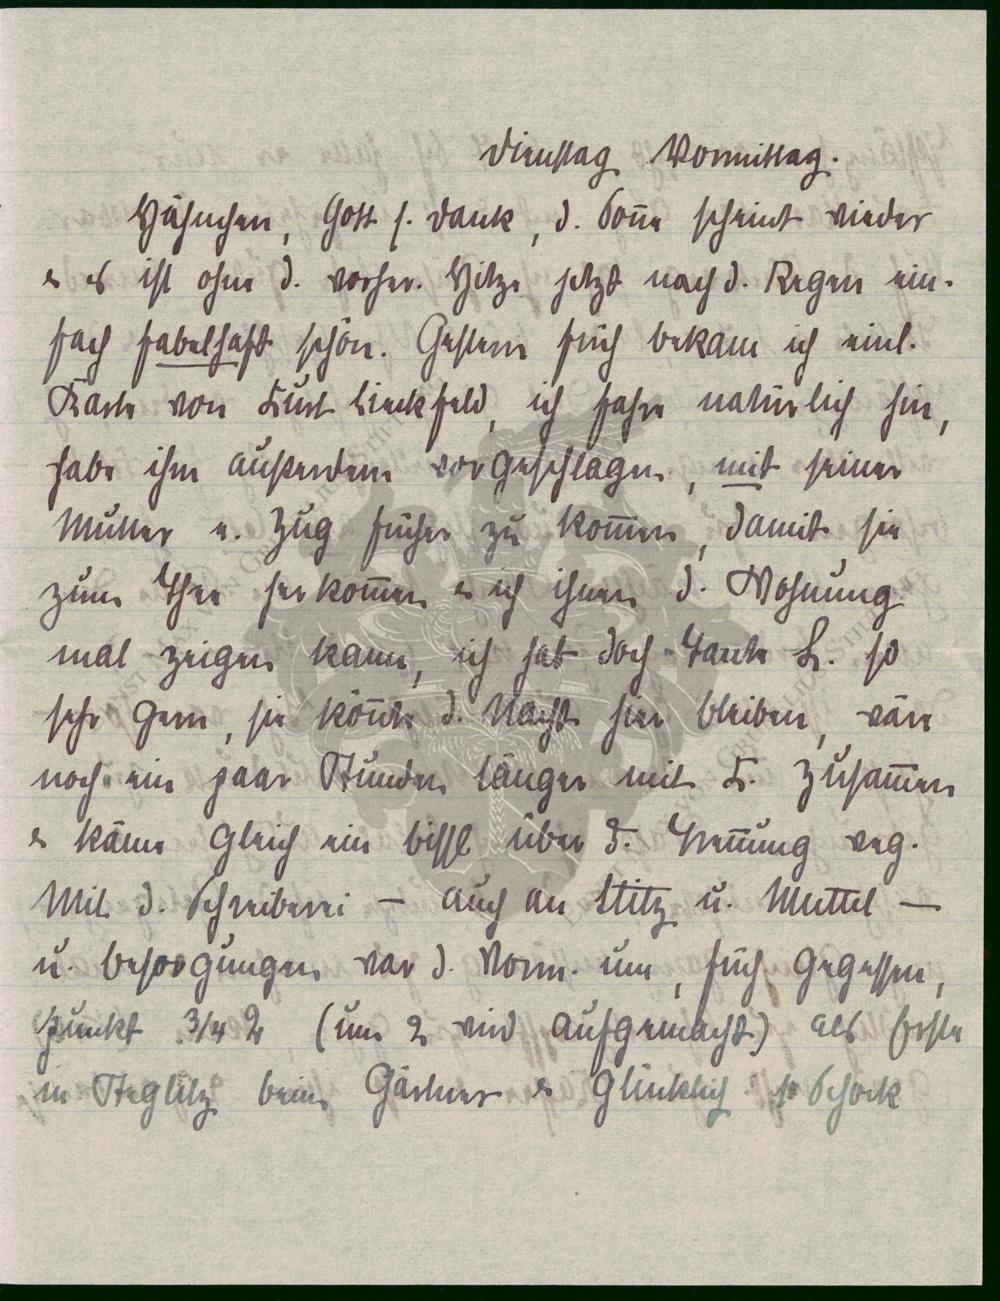 Dienstag Vormittag.
Hähnchen, Gott s. Dank, d. Son̄e scheint wieder
& es ist ohne d. vorher. Hitze jetzt nach d. Regen ein-
fach fabelhaft schön. Gestern früh bekam ich einl.
Karte von Kurt Linckfeld, ich fahre natürlich hin,
habe ihm außerdem vorgeschlagen, mit seiner
Mutter e. Zug früher zu kom̄en, damit sie
zum Thee herkom̄en & ich ihnen d. Wohnung
mal zeigen kann, ich hab doch Tante L. so
sehr gern, sie kön̄te d. Nacht hier bleiben, wäre
noch ein paar Stunden länger mit K. zusam̄en
& käme gleich ein bissl über d. Tren̄ung weg.
Mit d. Schreiberei – auch an Stitz u. Muttel –
u. besorgungen war d. Vorm. um, früh gegessen,
punkt 3/4 2 (um 2 wird aufgemacht) als erste
in Steglitz beim Gärtner & glücklich 1 Schock